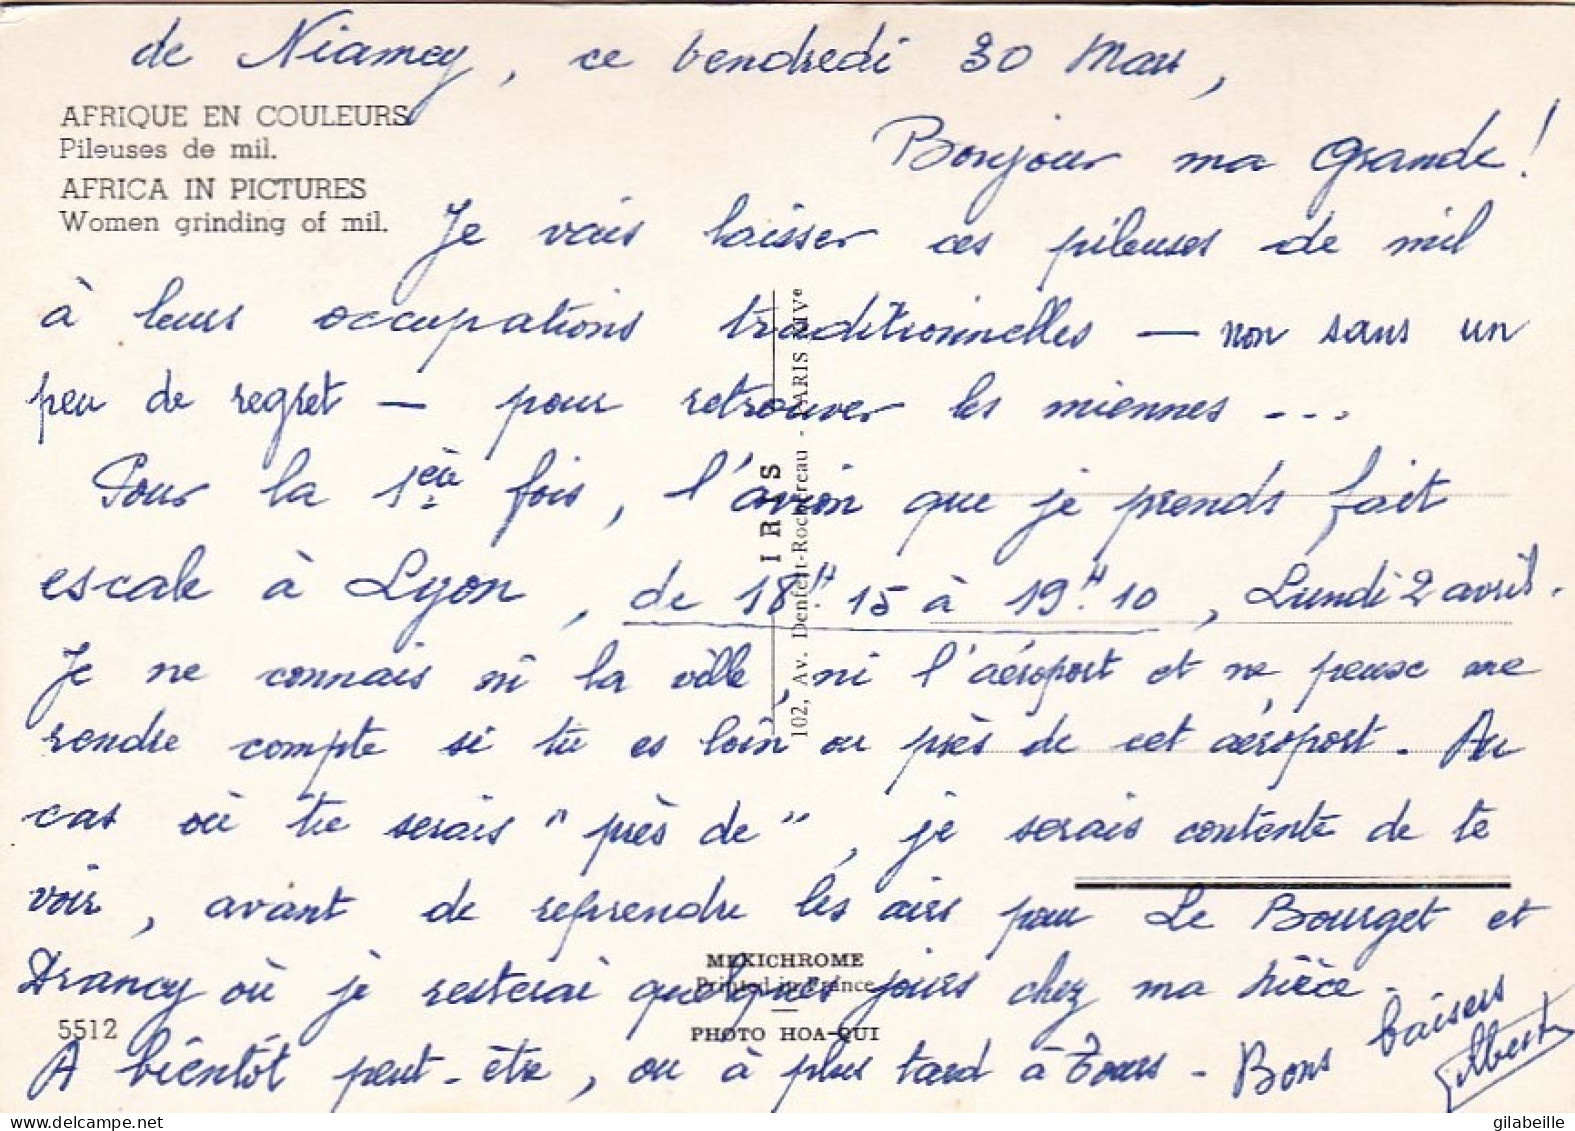 de Niamey, ce vendredi 30 Mars,
AFRIQUE EN COULEURS
Pileuses de mil.
AFRICA IN PICTURES
Women grinding of mil.
Bonjour ma Grande !
Je vais laisser ces pileuses de mil
à leurs occupations traditionnelles — non sans un
peu de regret — pour retrouver les miennes ...
Pour la 1ère fois, l'avion que je prends fait
escale à Lyon, de 18H.15 à 19H.10, Lundi 2 avril.
Je ne connais ni la ville, ni l'aéroport et ne peux me
rendre compte si tu es loin ou près de cet aéroport. Au
cas où tu serais "près de", je serais contente de te
voir, avant de reprendre les airs pour Le Bourget et
Drancy où je resterai quelques jours chez ma nièce.
A bientôt peut-être, ou à plus tard à Tours - Bons baisers
IRIS
102, Av. Denfert-Rochereau - PARIS XIVe
MEXICHROME
Printed in France
PHOTO HOA-QUI
5512
delcampe.net
gilabeille